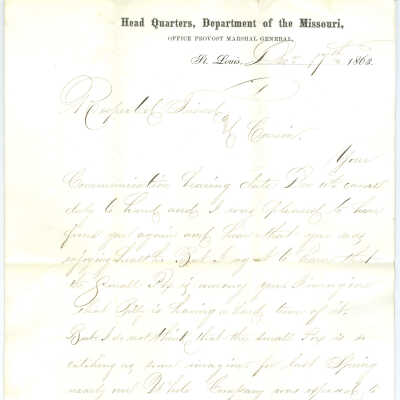 Head Quarters, Department of the Missouri,
OFFICE PROVOST MARSHAL GENERAL,
St. Louis, Dec 17th 1863.
Respected Friend
& Cousin.
Your
Communication bearing date Dec came
duly to hand and I was pleased to hear
from you again and hear that you was
enjoying health But I to learn that
the Small Pox is among you I imagine
that is having a hard time of it.
But I do not think that the Small Pox is so
catching as some imagine for last Spring
nearly our Whole Company was exposed to